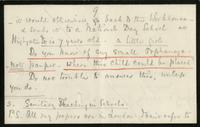 9
is would otherwise go back to the Workhouse
& sends it to a National Day School at
Highgate 7 years old - a little girl
Do you know of any small Orphanage
not pauper, where this child could be placed
Do not trouble to answer this, unless
you do.
3. Sanitary Teaching in Schools.
P.S. All my papers are in London. I can refer to